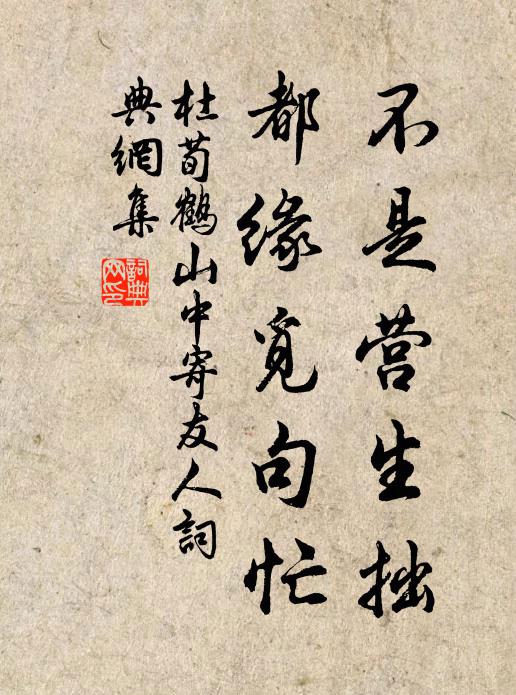 不是营生拙
都缘覓句忙
杜荀鶴山中寄友人詞
典網集
詞典网印